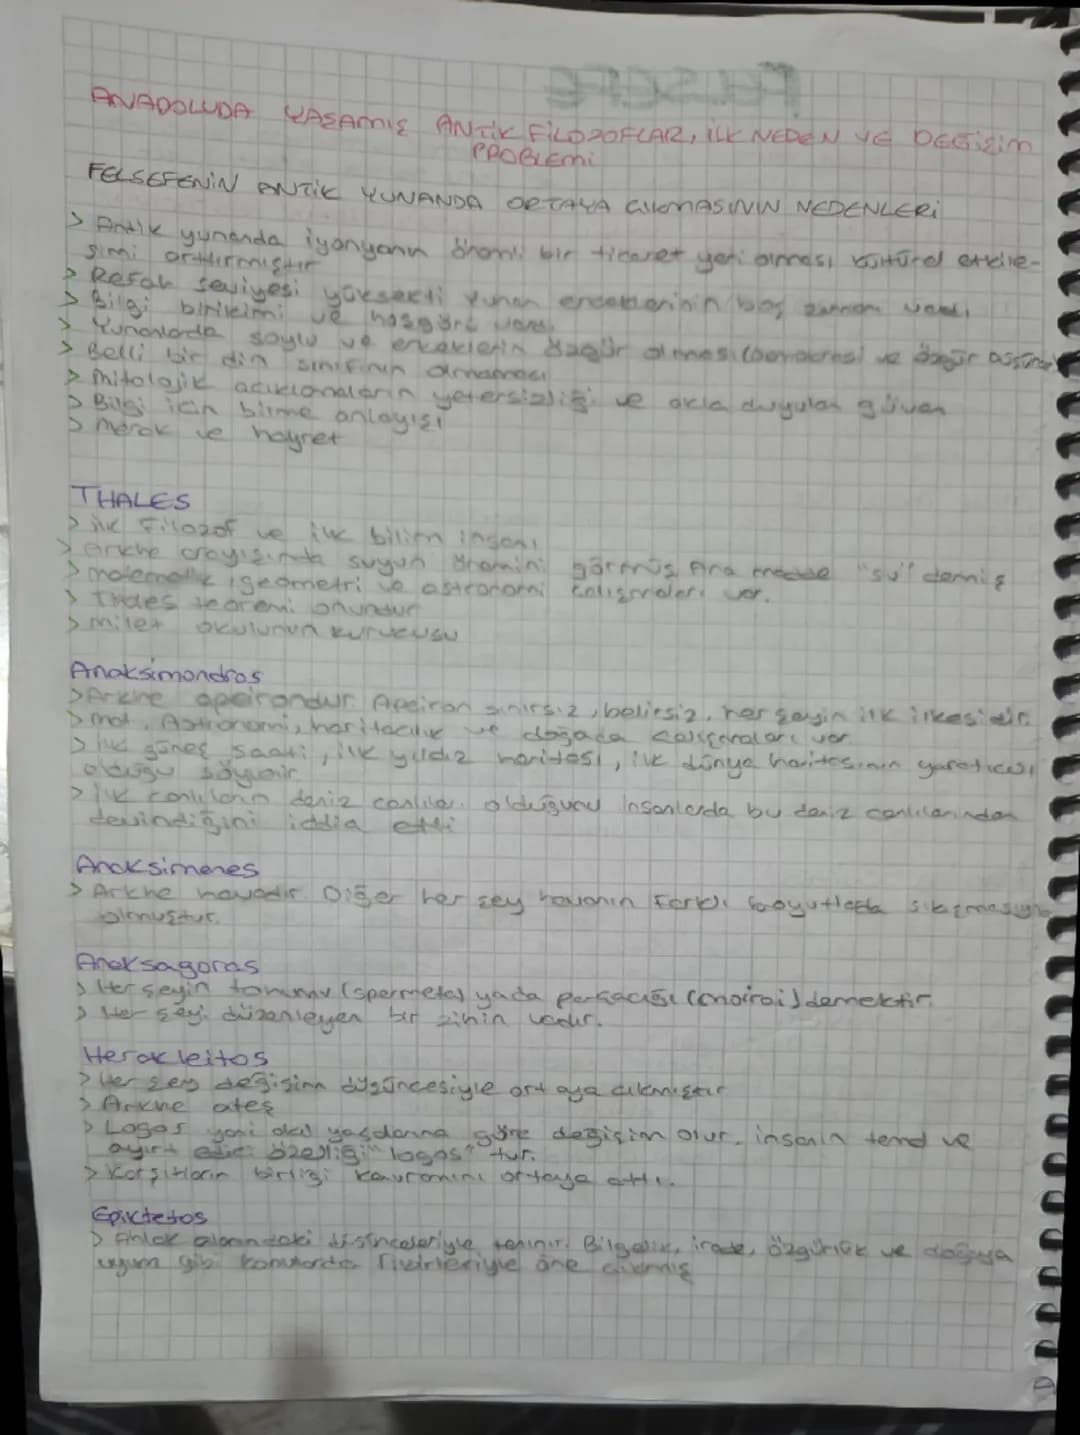 FELSEFE
ANADOLUDA YAŞAMIŞ ANTİK FİLOZOFLAR, İLK NEDEN VE DEĞİŞİM
PROBLEMİ
FELSEFENİN ANTİK YUNANDA ORTAYA ÇIKMASININ NEDENLERİ
> Antik yunanda iyonyanın önemli bir ticaret yeri olması kültürel etkile-
şimi arttırmıştır
> Refah seviyesi yüksekti Yunan erkeklerinin boş zamanı vardı
> Bilgi birikimi ve hoşgörü vardı
> Yunanlarda soylu ve erkeklerin özgür olması (demokrasi ve özgür
> Belli bir din sınıfının olmaması
> Mitolojik açıklamaların yetersizliği ve akla duyulan güven
> Bilgi için bilme anlayışı
> Merak ve hayret
THALES
> ilk Filozof ve ilk bilim insanı
> Arkhe arayışında suyun önemini görmüş Ana madde "su" demiş
> matematik, geometri ve astronomi çalışmaları var.
> Thales teoremi onundur
> milet okulunun kurucusu
Anaksimandros
> Arkhe apeirondur. Apeiran sınırsız, belirsiz, her şeyin ilk ilkesidir.
> mat, Astronomi, haritacılık ve doğada çalışmaları var
> ilk güneş saati, ilk yıldız haritası, ilk dünya haritasının yaratıcısı
olduğu söylenir
> ilk canlıların deniz canlıları olduğunu insanlarda bu deniz canlılarından
devindiğini iddia etti
Anaksimenes
> Arkhe havadır. Diğer her şey havanın Farklı boyutlarda sıkışmasıyla
olmuştur.
Anaksagoras
> Her şeyin tohumu (spermata) yada parçacığı (moirai) demektir.
> Her şeyi düzenleyen bir zihin vardır.
Herakleitos
> Her şey değişim düşüncesiyle ortaya çıkmıştır
> Arkhe ateş
> Logos yani akıl yasalarına göre değişim olur. insanın temel ve
ayırt edici özelliği "logos" tur.
> Karşıtların birliği kavramını ortaya attı.
Epiktetos
> Ahlak alanındaki düşünceleriyle tanınır. Bilgelik, irade, özgürlük ve doğaya
uyum gibi konularda Fikirleriyle öne çıkmış